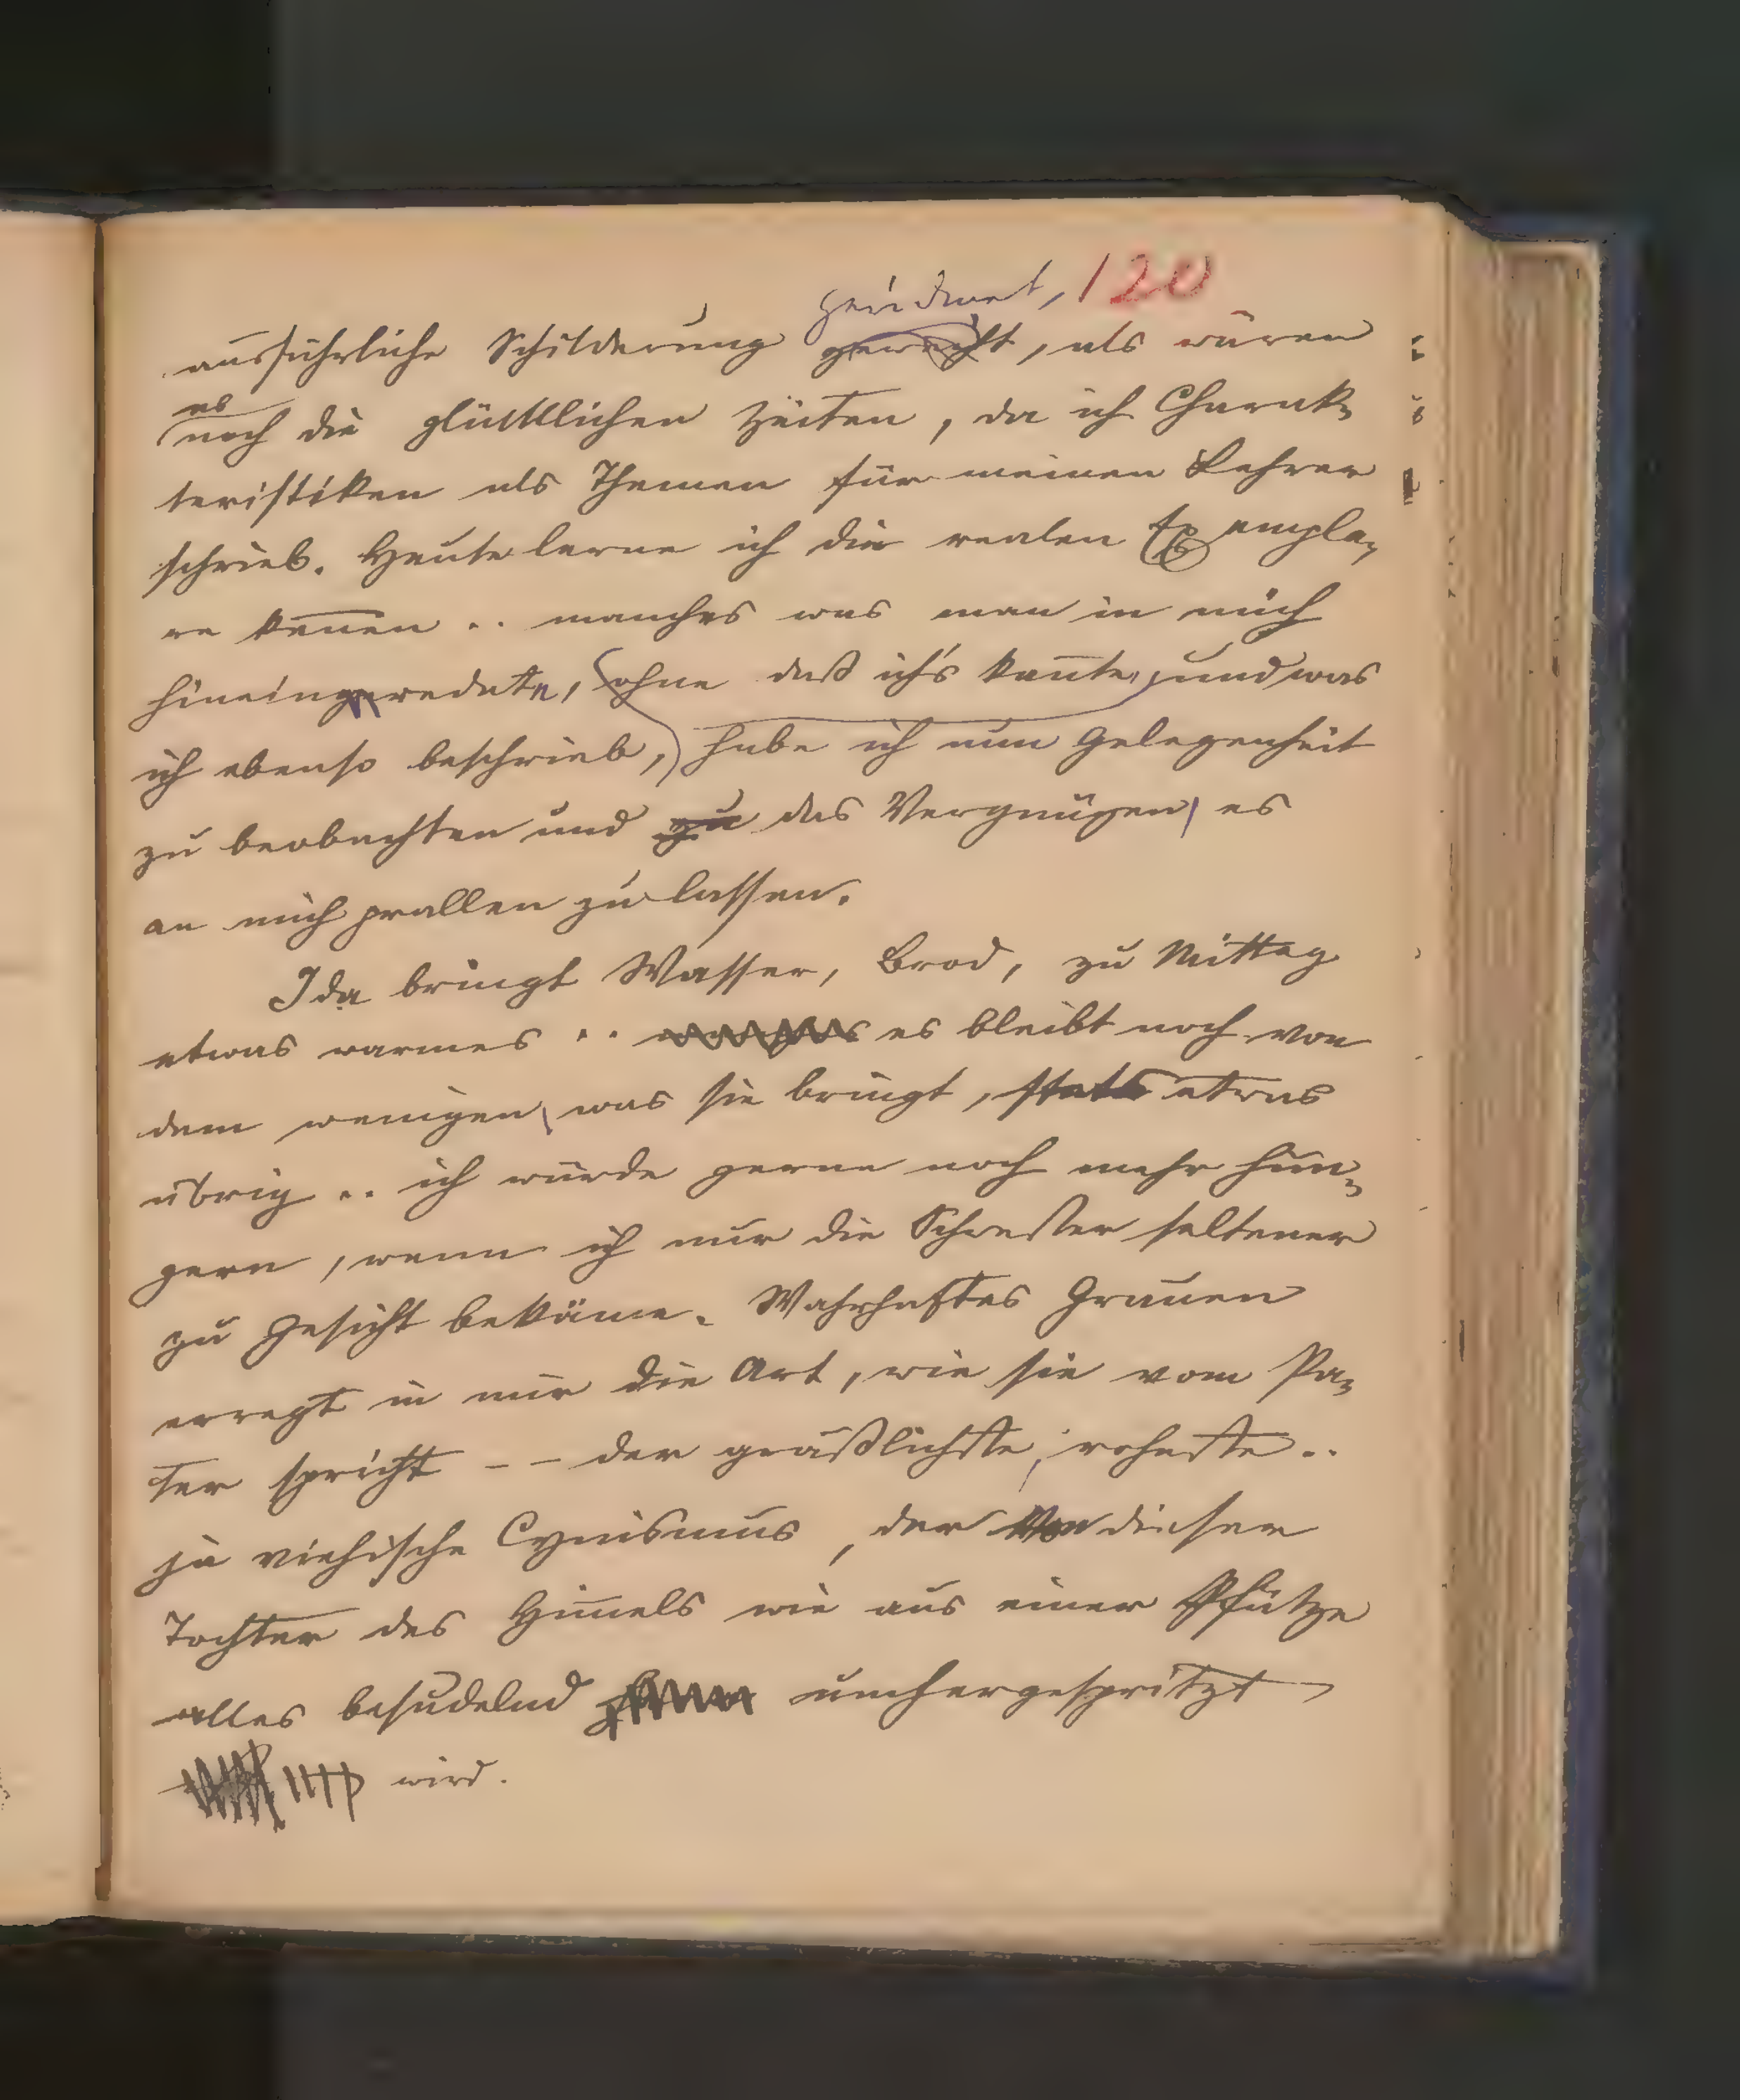 zeichnet, 120
ausführliche Schilderung gewacht, als wären
es
noch die glücklichen Zeiten, da ich Charak-
teristiken als Themen für meinen Lehrer
schrieb. Heute lerne ich die realen Exempla-
re kennen .. manches was man in mich
hineingeredete, ohne daß ich's kannte, und was
ich ebenso beschrieb, habe ich nun Gelegenheit
zu beobachten und zu das Vergnügen, es
an mich prallen zu lassen.
Ida bringt Wasser, Brod, zu Mittag
etwas warmes .. es bleibt noch von
dem wenigen, was sie bringt, stets etwas
übrig .. ich würde gerne noch mehr hun-
gern, wenn ich nur die Schwester seltener
zu Gesicht bekäme. Wahrhaftes Grauen
erregt in mir die Art, wie sie vom Pa-
ter spricht -- der gräßlichste, roheste ..
ja viehische Cynismus, der von dieser
Tochter des Himmels wie aus einer Pfütze
alles besudelnd umhergespritzt
wird.